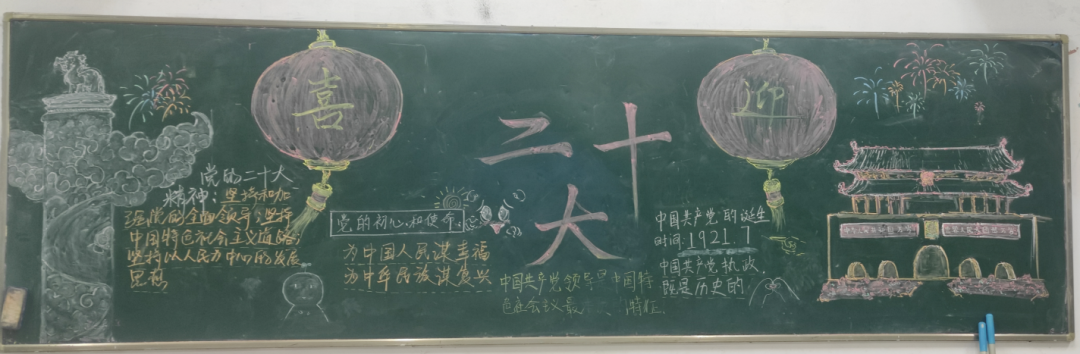 喜
迎
二十
大
党的二十大
精神：坚持和加
强党的全面领导；坚持
中国特色社会主义道路；
坚持以人民为中心的发展
思想
党的初心和使命
为中国人民谋幸福
为中华民族谋复兴
中国共产党领导是中国特
色社会议最 特征
中国共产党的诞生
时间：1921.7
中国共产党执政
既是历史的